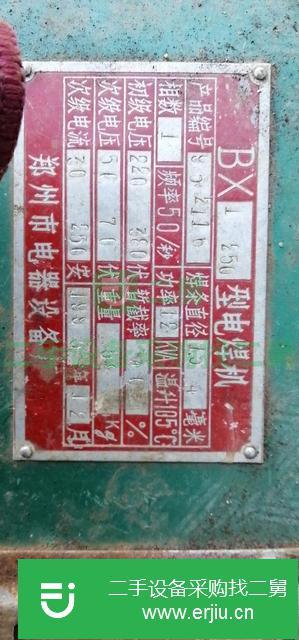 BX1 250 型电焊机
产品编号 焊条直径 4 毫米
相数 1 频率50/秒 功率12KVA 温升85℃
初级电压 220 380 伏 暂载率 %
次级电压 50 70 伏 重量 Kg
次级电流 30 250 安 12月
郑州市电器设备
二手设备采购找二舅
www.erjiu.cn